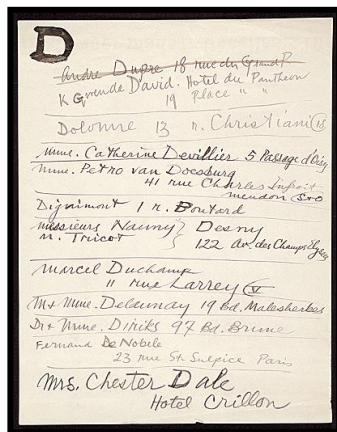 D
Andre Dupre 18 rue du Grand P.
K Gwende David. Hotel du Pantheon
19 Place " "
Dolonne 13 r. Christiani (18
Mme. Catherine Devillier 5 Passage
Mme. Petro van Doesburg
41 rue Charles Infroit
meudon S+O
Dignimont 1 r. Boutard
messieurs Nauny } Desny
M. Tricot } 122 av. des Champs Elysees
Marcel Duchamp
11 rue Larrey (V)
M + Mme. Delaunay 19 Bd. Malesherbes
Dr + Mme. Diriks 97 Bd. Brune
Fernand De Nobele
23 rue St. Sulpice Paris
Mrs. Chester Dale
Hotel Crillon